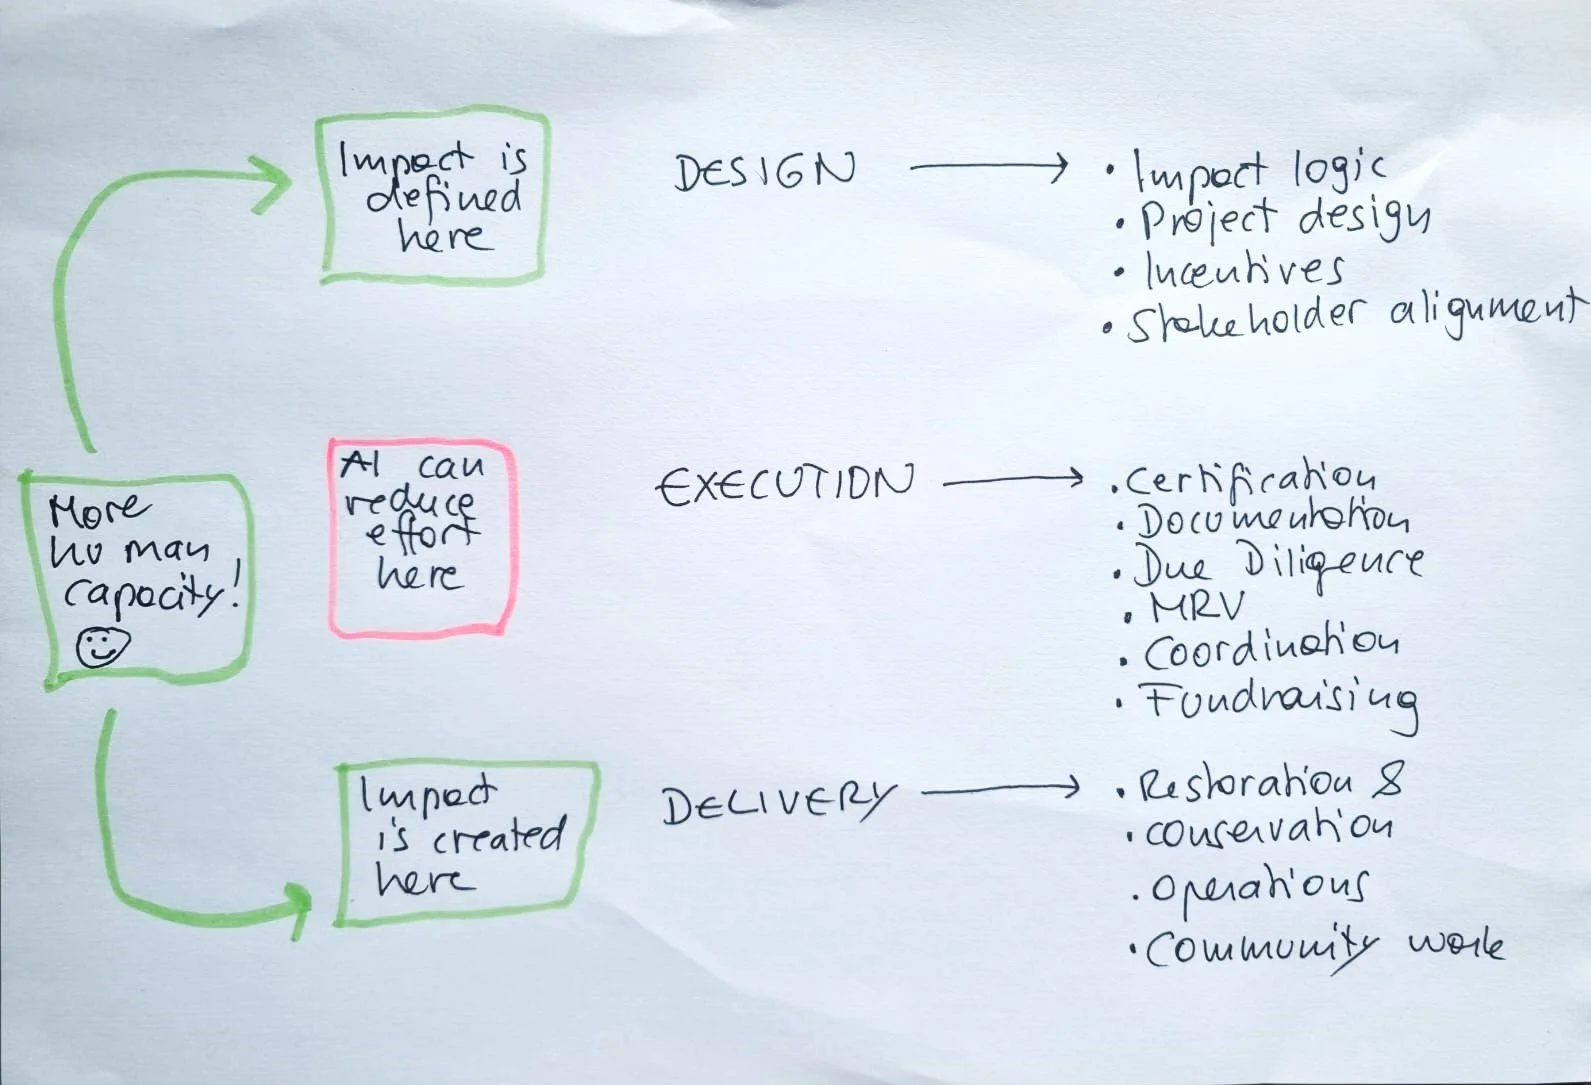 Impact is
defined
here
DESIGN
• Impact logic
• Project design
• Incentives
• Stakeholder alignment
More
human
capacity!
AI can
reduce
effort
here
EXECUTION
• Certification
• Documentation
• Due Diligence
• MRV
• Coordination
• Fundraising
Impact
is created
here
DELIVERY
• Restoration &
• conservation
• Operations
• Community work